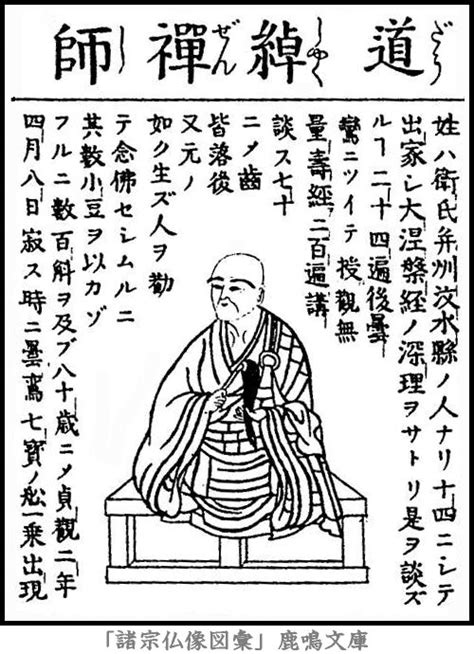 道綽禪師
だうしやくぜんし
姓ハ衛氏并洲汶水縣ノ人ナリ十四ニシテ
出家シ大涅槃経ノ深理ヲサトリ是ヲ談ズ
ルヿ二十四遍後曇
鸞ニツイテ授觀無
量壽經二百遍講
談ス七十
ニメ齒
皆落後
又元ノ
如ク生ズ人ヲ勸
テ念佛セシムルニ
其數小豆ヲ以カゾ
フルニ數百斛ヲ及ブ八十歳ニメ貞觀二年
四月八日寂ス時ニ曇鸞七寶ノ舩一乗出現
「諸宗仏像図彙」鹿鳴文庫